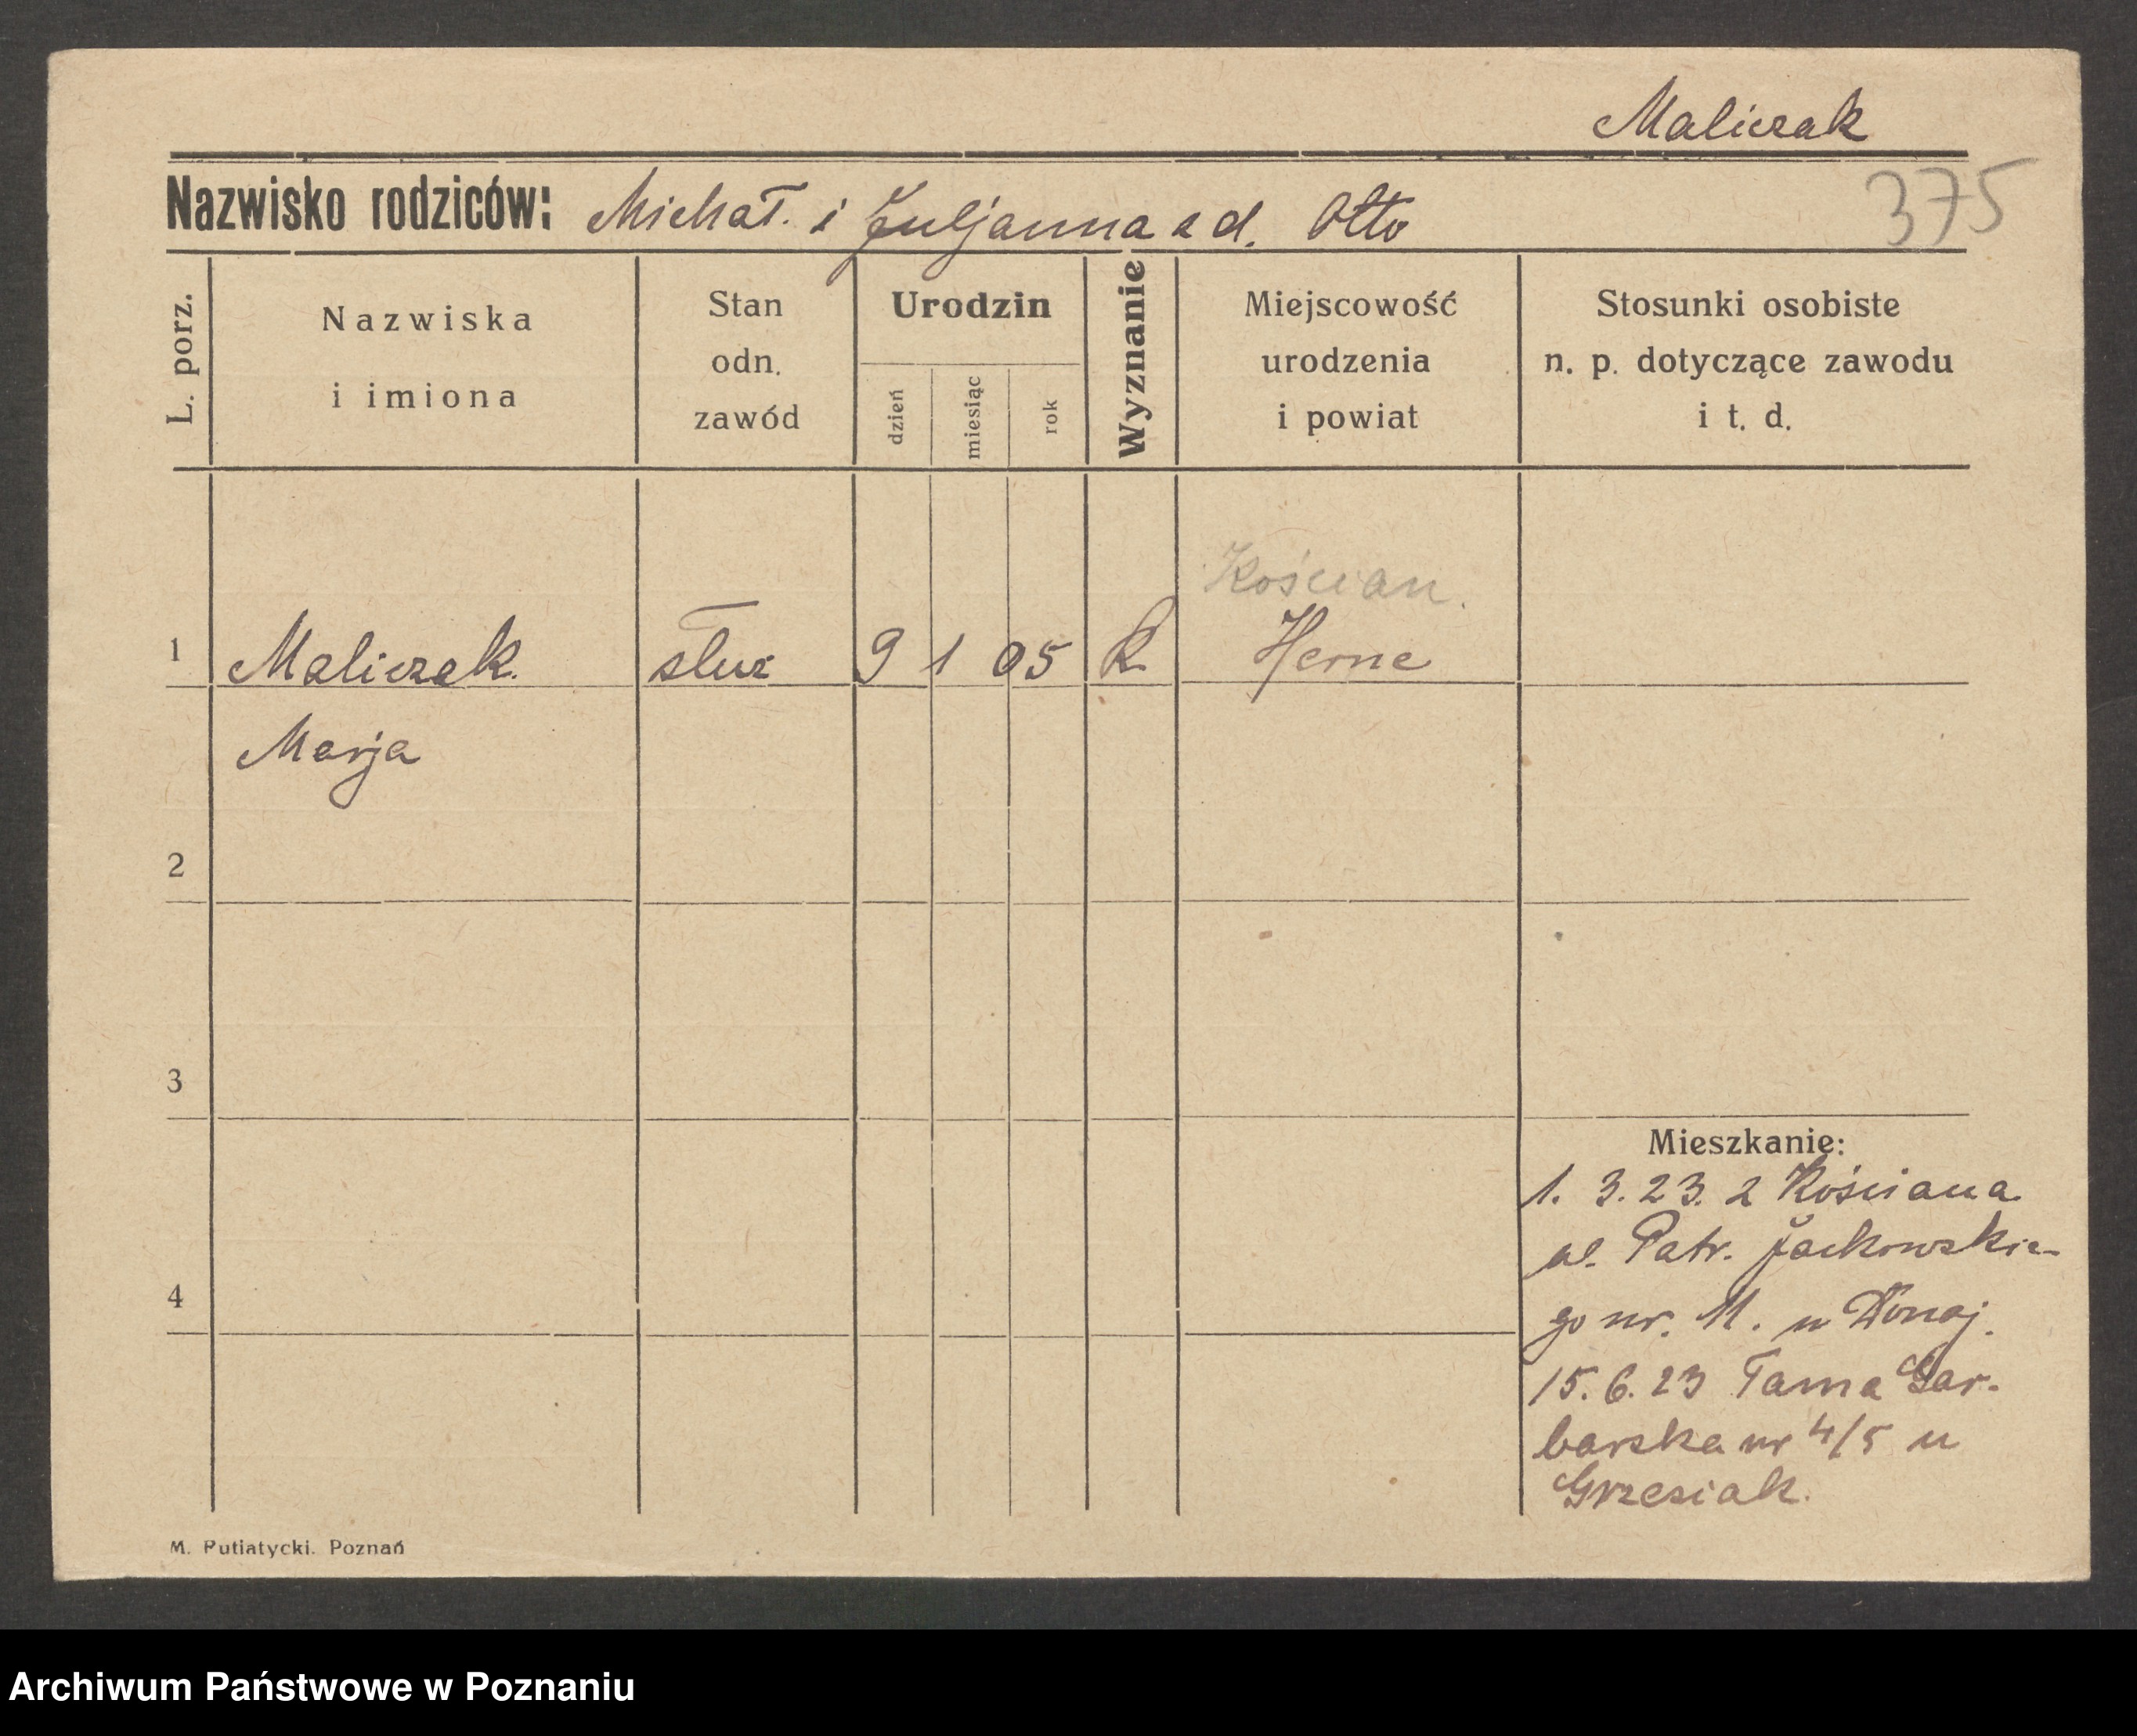 Maliczak
Nazwisko rodziców: Michał. i Juljanna z d. Otto
375
L. porz.
Nazwiska
i imiona
Stan
odn.
zawód
Urodzin
dzień
miesiąc
rok
Wyznanie
Miejscowość
urodzenia
i powiat
Stosunki osobiste
n. p. dotyczące zawodu
i t. d.
Kościan.
1 Maliczak. służ 9 1 05 R. Herne
Marja
2
3
Mieszkanie:
1. 3. 23. z Kościana
ul. Patr. Jackowskie-
4
go nr. 11. u
15. 6. 23 Tama Gar-
barska nr 4/5 u
Grzesiak.
M. Putiatycki. Poznań
Archiwum Państwowe w Poznaniu